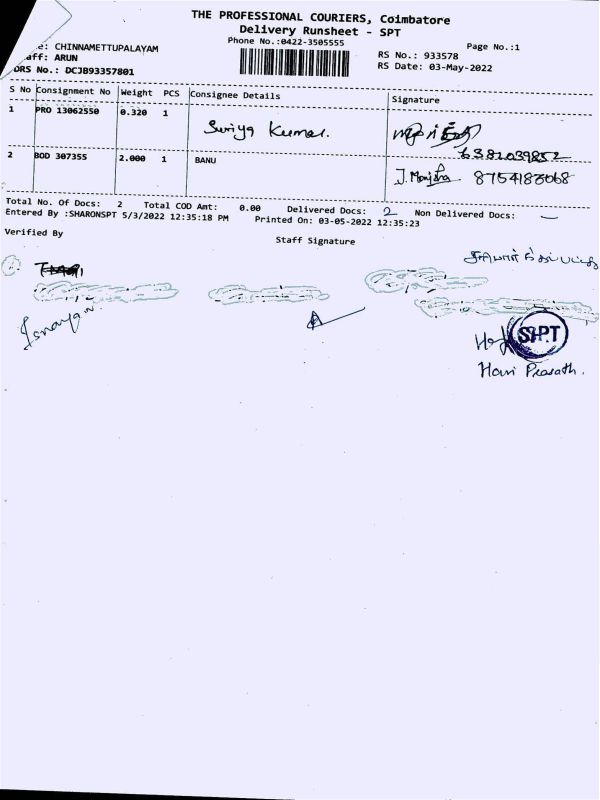 THE PROFESSIONAL COURIERS, Coimbatore
Delivery Runsheet - SPT
Phone No.:0422-3505555
Page No.:1
e: CHINNAMETTUPALAYAM
aff: ARUN
RS No.: 933578
DRS No.: DCJB93357801
RS Date: 03-May-2022
S No Consignment No Weight PCS Consignee Details Signature
1 PRO 13062550 0.320 1 Suriya Kumar.
6381039852
2 BOD 307355 2.000 1 BANU J. Monisha 8754183068
Total No. Of Docs: 2 Total COD Amt: 0.00 Delivered Docs: 2 Non Delivered Docs: —
Entered By :SHARONSPT 5/3/2022 12:35:18 PM Printed On: 03-05-2022 12:35:23
Verified By Staff Signature
SPT
Hari Prasath.